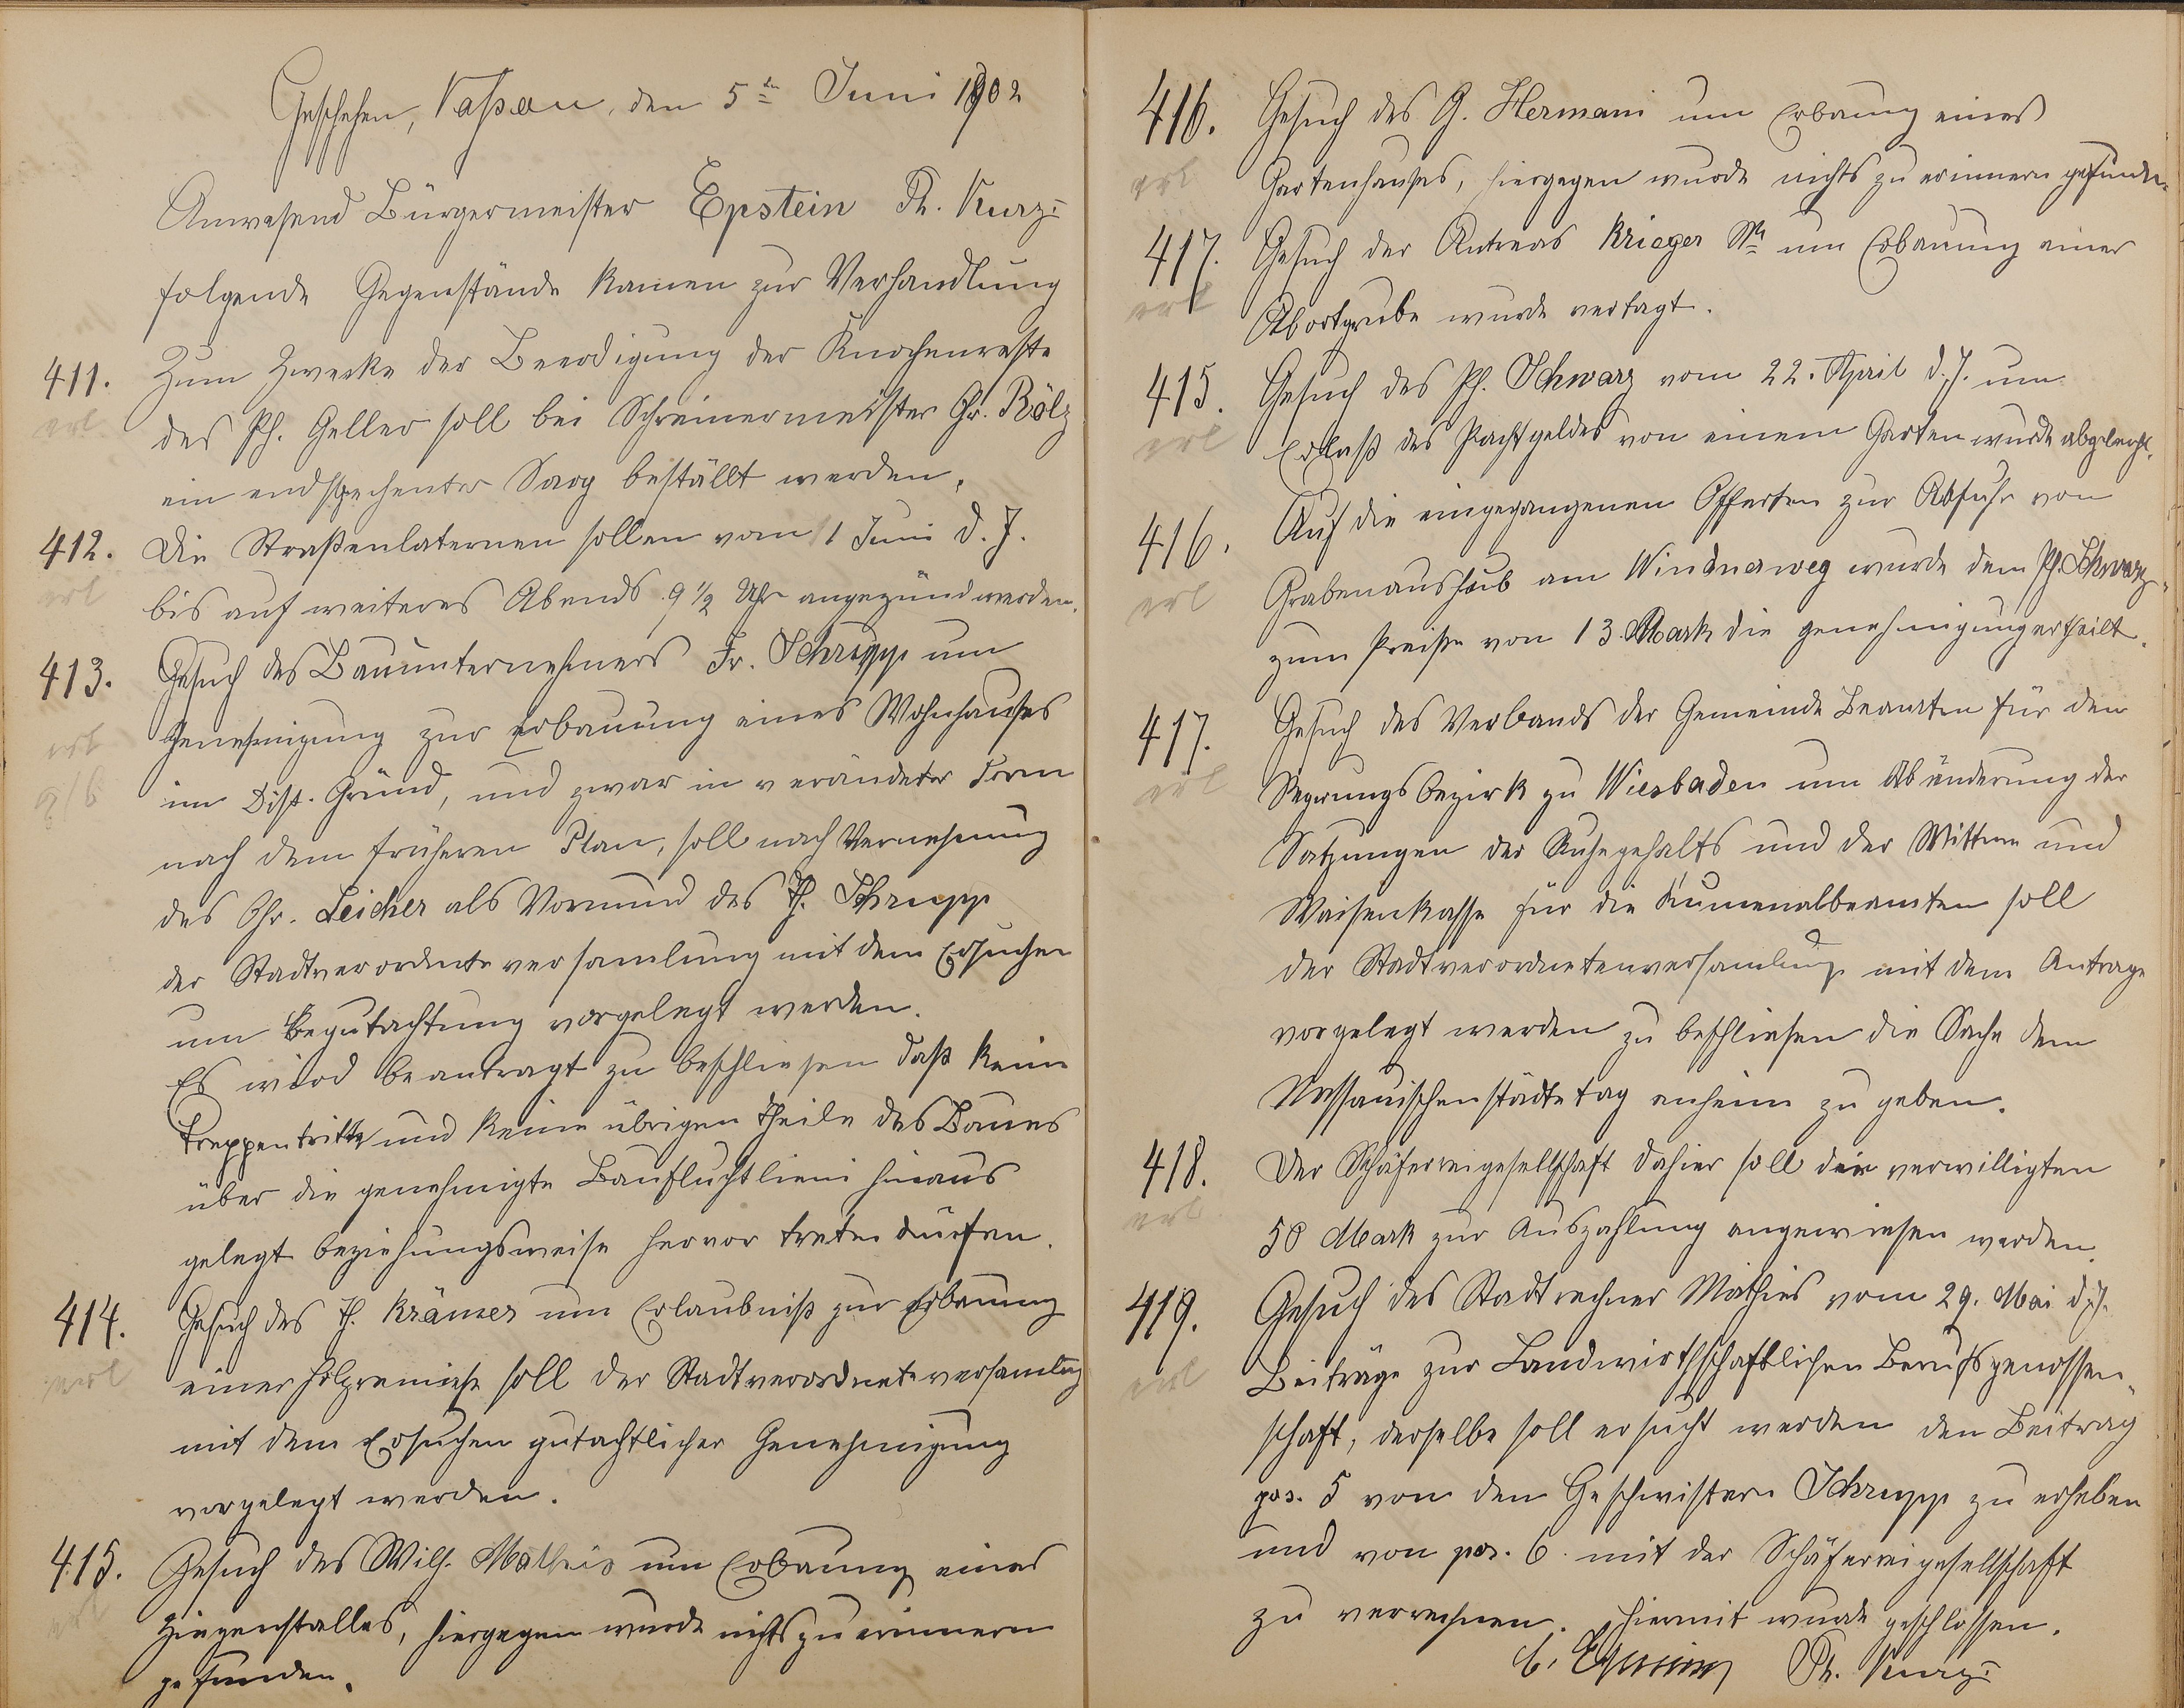 Geschehen, Naßau, den 5ten Juni 1902
Anwesend Bürgermeister Epstein Ph. Kurz
folgende Gegenstände kamen zur Verhandlung
411. Zum Zwecke der Beerdigung der Knochenreste
erl
des Ph. Geller soll bei Schreinermeister Chr. Bölz
ein endsprechenter Sarg beställt werden.
412. Die Straßenlaternen sollen vom 1 Juni d. J.
erl
bis auf weiteres Abends 9 1/2 Uhr angezünd werden.
413. Gesuch des Bauunternehmers Fr. Schrupp um
erl
9/6
Genehmigung zur Erbauung eines Wohnhauses
im Dist. Gründ, und zwar in verändeter Form
nach dem früheren Plan, soll nach Vernehmung
des Chr. Leicher als Vormund des Th. Schrupp
der Stadtverordneteversamlung mit dem Ersuchen
um Begutachtung vorgelegt werden.
Es wird beantragt zu beschliesen daß keine
Treppentritte und keine übrigen Theile des Baues
über die genehmigte Baufluchtlieni hinaus
gelegt beziehungsweise hervor treten dürfen.
414. Gesuch des Th. Krämer um Erlaubniß zur Erbauung
erl
einer Holzremiese soll der Stadtverordneteversamlug
mit dem Ersuchen gutachtlicher Genehmigung
vorgelegt werden.
415. Gesuch des Wilh. Matheis um Erbaung eines
erl
Ziegenstalles, hiergegen wurde nichts zu erinnern
gefunden.
416. Gesuch des G. Hermani um Erbaung eines
erl
Gartenhauses, hiergegen wurde nichts zu erinnern gefunden.
417. Gesuch der Antreas Krieger Ww um Erbauung einer
erl
Abortgrube wurde vertagt.
415. Gesuch des Ph. Schwarz vom 22. April d. J. um
erl
Erlaß des Pachtgeldes von einem Garten wurde abgelehnt.
416. Auf die eingegangenen Offerten zur Abfuhr von
erl
Grabenaushub am Windnerweg wurde dem Ph. Schwarz
zum Preise von 13. Mark die genehmigung ertheilt.
417. Gesuch des Verbands der Gemeinde Beamten für den
erl
Regirungsbezirk zu Wiesbaden um Abänderung der
Satzungen der Ruhegehalts und der Wittwen und
Waisenkasse für die Kumenalbeamten soll
der Stadtverordnetenversamlung mit dem Antrage
vorgelegt werden zu beschliesen die Sache dem
Nassauischenstädtetag anheim zu geben.
418. Der Schäfereigesellschaft dahier soll die verwilligten
erl
50 Mark zur Auszahlung angewiesen werden.
419. Gesuch des Stadtrechner Mathies vom 29. Mai d. J.
erl
Beiträge zur Landwirthschaftlichen Berufsgenossen-
schaft, derselbe soll ersucht werden den Beitrag
pos. 5 von den Geschwistern Schrupp zu erheben
und von pos. 6. mit der Schäfereigesellschaft
zu verrechnen. Hiermit wurde geschlossen.
C. Epstein Ph. Kurz